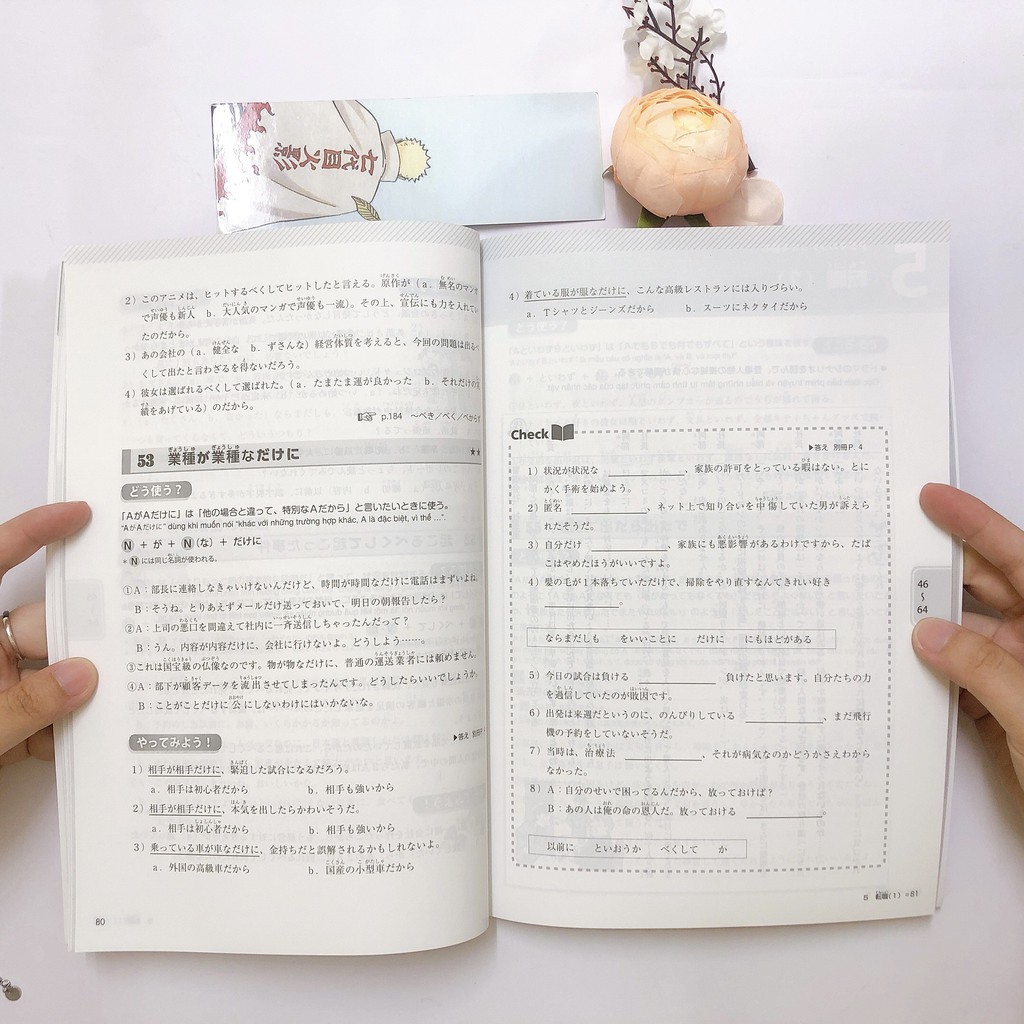 七代目火影
2）このアニメは、ヒットするべくしてヒットしたと言える。原作が（a．無名のマンガ
で声優も新人　b．大人気のマンガで声優も一流）。その上、宣伝にも力を入れてい
たのだから。
3）あの会社の（a．健全な　b．ずさんな）経営体質を考えると、今回の問題は出るべ
くして出たと言わざるを得ないだろう。
4）彼女は選ばれるべくして選ばれた。（a．たまたま運が良かった　b．それだけの実
績をあげている）のだから。
p.184　～べき／べく／べからず
53　業種が業種なだけに　★★
どう使う？
「AがAだけに」は「他の場合と違って、特別なAだから」と言いたいときに使う。
"AがAだけに" dùng khi muốn nói "khác với những trường hợp khác, A là đặc biệt, vì thế …".
N ＋ が ＋ N（な）＋ だけに
＊Nには同じ名詞が使われる。
①A：部長に連絡しなきゃいけないんだけど、時間が時間なだけに電話はまずいよね。
B：そうね。とりあえずメールだけ送っておいて、明日の朝報告したら？
②A：上司の悪口を間違えて社内に一斉送信しちゃったんだって？
B：うん。内容が内容だけに、会社に行けないよ。どうしよう……。
③これは国宝級の仏像なのです。物が物なだけに、普通の運送業者には頼めません。
④A：部下が顧客データを流出させてしまったんです。どうしたらいいでしょうか。
B：ことがことだけに公にしないわけにはいかないな。
やってみよう！
▶答え 別冊P.
1）相手が相手だけに、緊迫した試合になるだろう。
a．相手は初心者だから　b．相手も強いから
2）相手が相手だけに、本気を出したらかわいそうだ。
a．相手は初心者だから　b．相手も強いから
3）乗っている車が車なだけに、金持ちだと誤解されるかもしれないよ。
a．外国の高級車だから　b．国産の小型車だから
80
4）着ている服が服なだけに、こんな高級レストランには入りづらい。
a．Tシャツとジーンズだから　b．スーツにネクタイだから
Check
▶答え 別冊P. 4
1）状況が状況な＿＿＿＿、家族の許可をとっている暇はない。とに
かく手術を始めよう。
2）匿名＿＿＿＿、ネット上で知り合いを中傷していた男が訴えら
れたそうだ。
3）自分だけ＿＿＿＿、家族にも悪影響があるわけですから、たば
こはやめたほうがいいですよ。
4）髪の毛が1本落ちていただけで、掃除をやり直すなんてきれい好き
＿＿＿＿
ならまだしも　をいいことに　だけに　にもほどがある
5）今日の試合は負ける＿＿＿＿負けたと思います。自分たちの力
を過信していたのが敗因です。
6）出発は来週だというのに、のんびりしている＿＿＿＿、まだ飛行
機の予約をしていないそうだ。
7）当時は、治療法＿＿＿＿、それが病気なのかどうかさえわから
なかった。
8）A：自分のせいで困ってるんだから、放っておけば？
B：あの人は俺の命の恩人だ。放っておける＿＿＿＿
以前に　といおうか　べくして　か
46
～
64
5　転職（1）●81